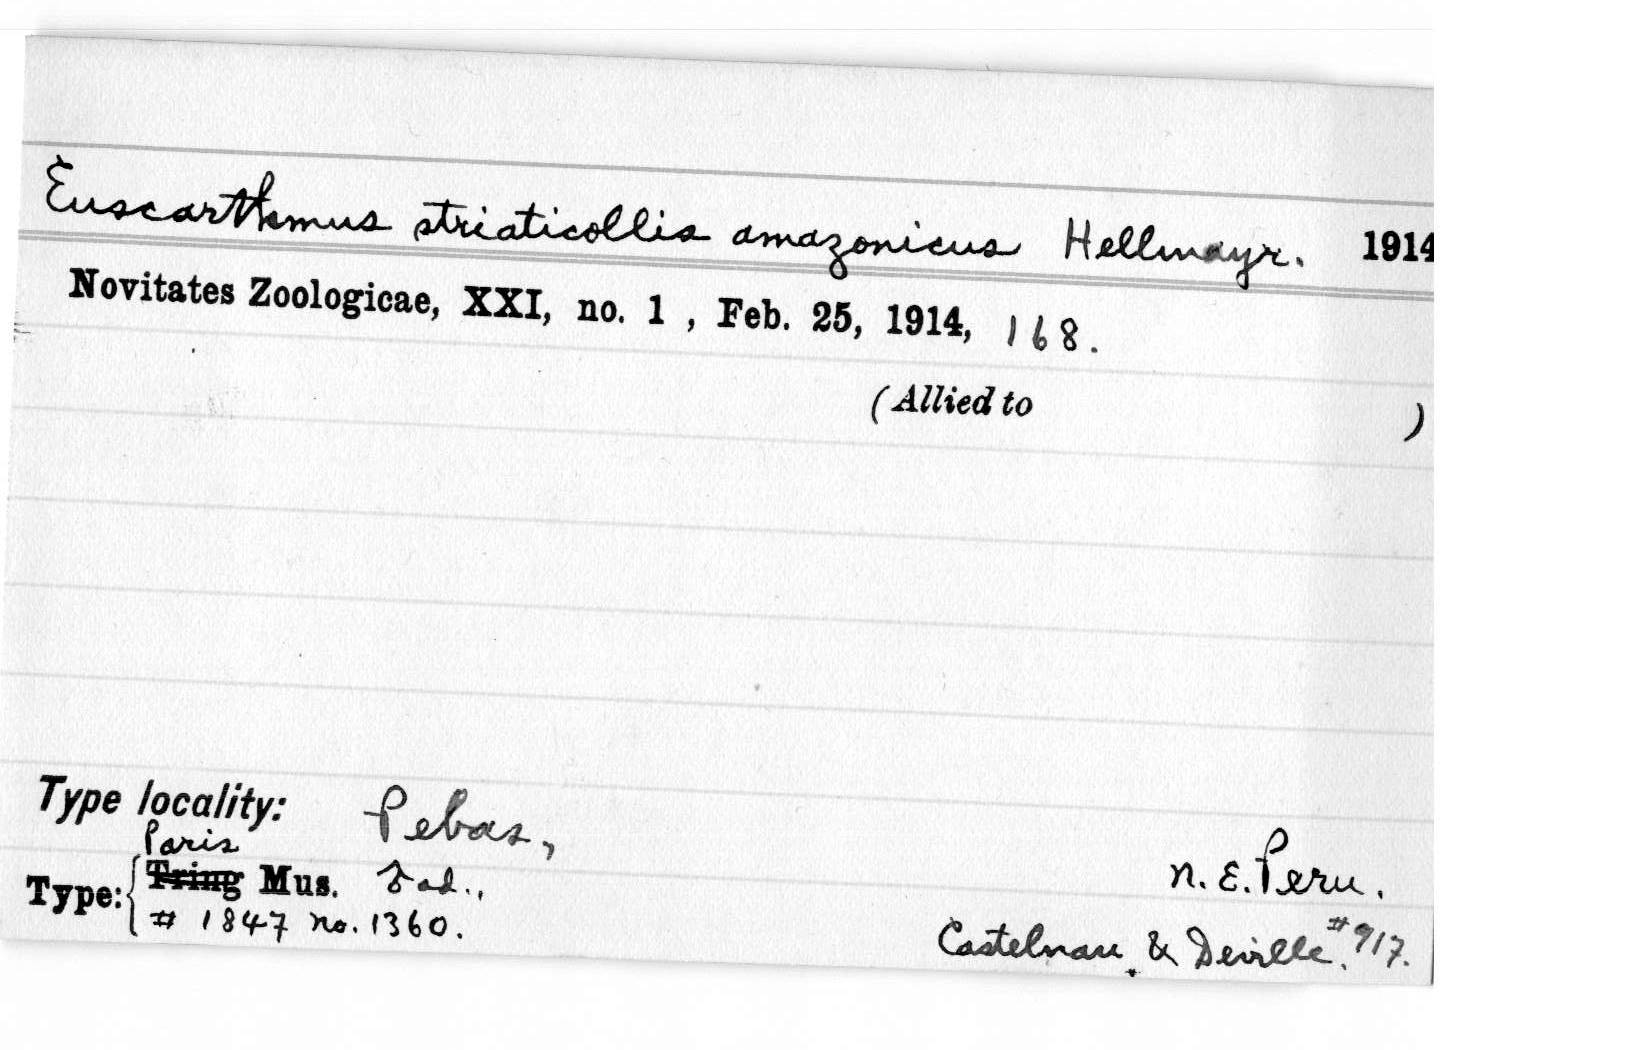 Euscarthmus striaticollis amazonicus Hellmayr. 1914
Novitates Zoologicae, XXI, no. 1 , Feb. 25, 1914, 168.
(Allied to )
Type locality: Pebas, N. E. Peru.
Paris
Type: Tring Mus. ad., Castelnau & Deville. #917.
# 1847 No. 1360.